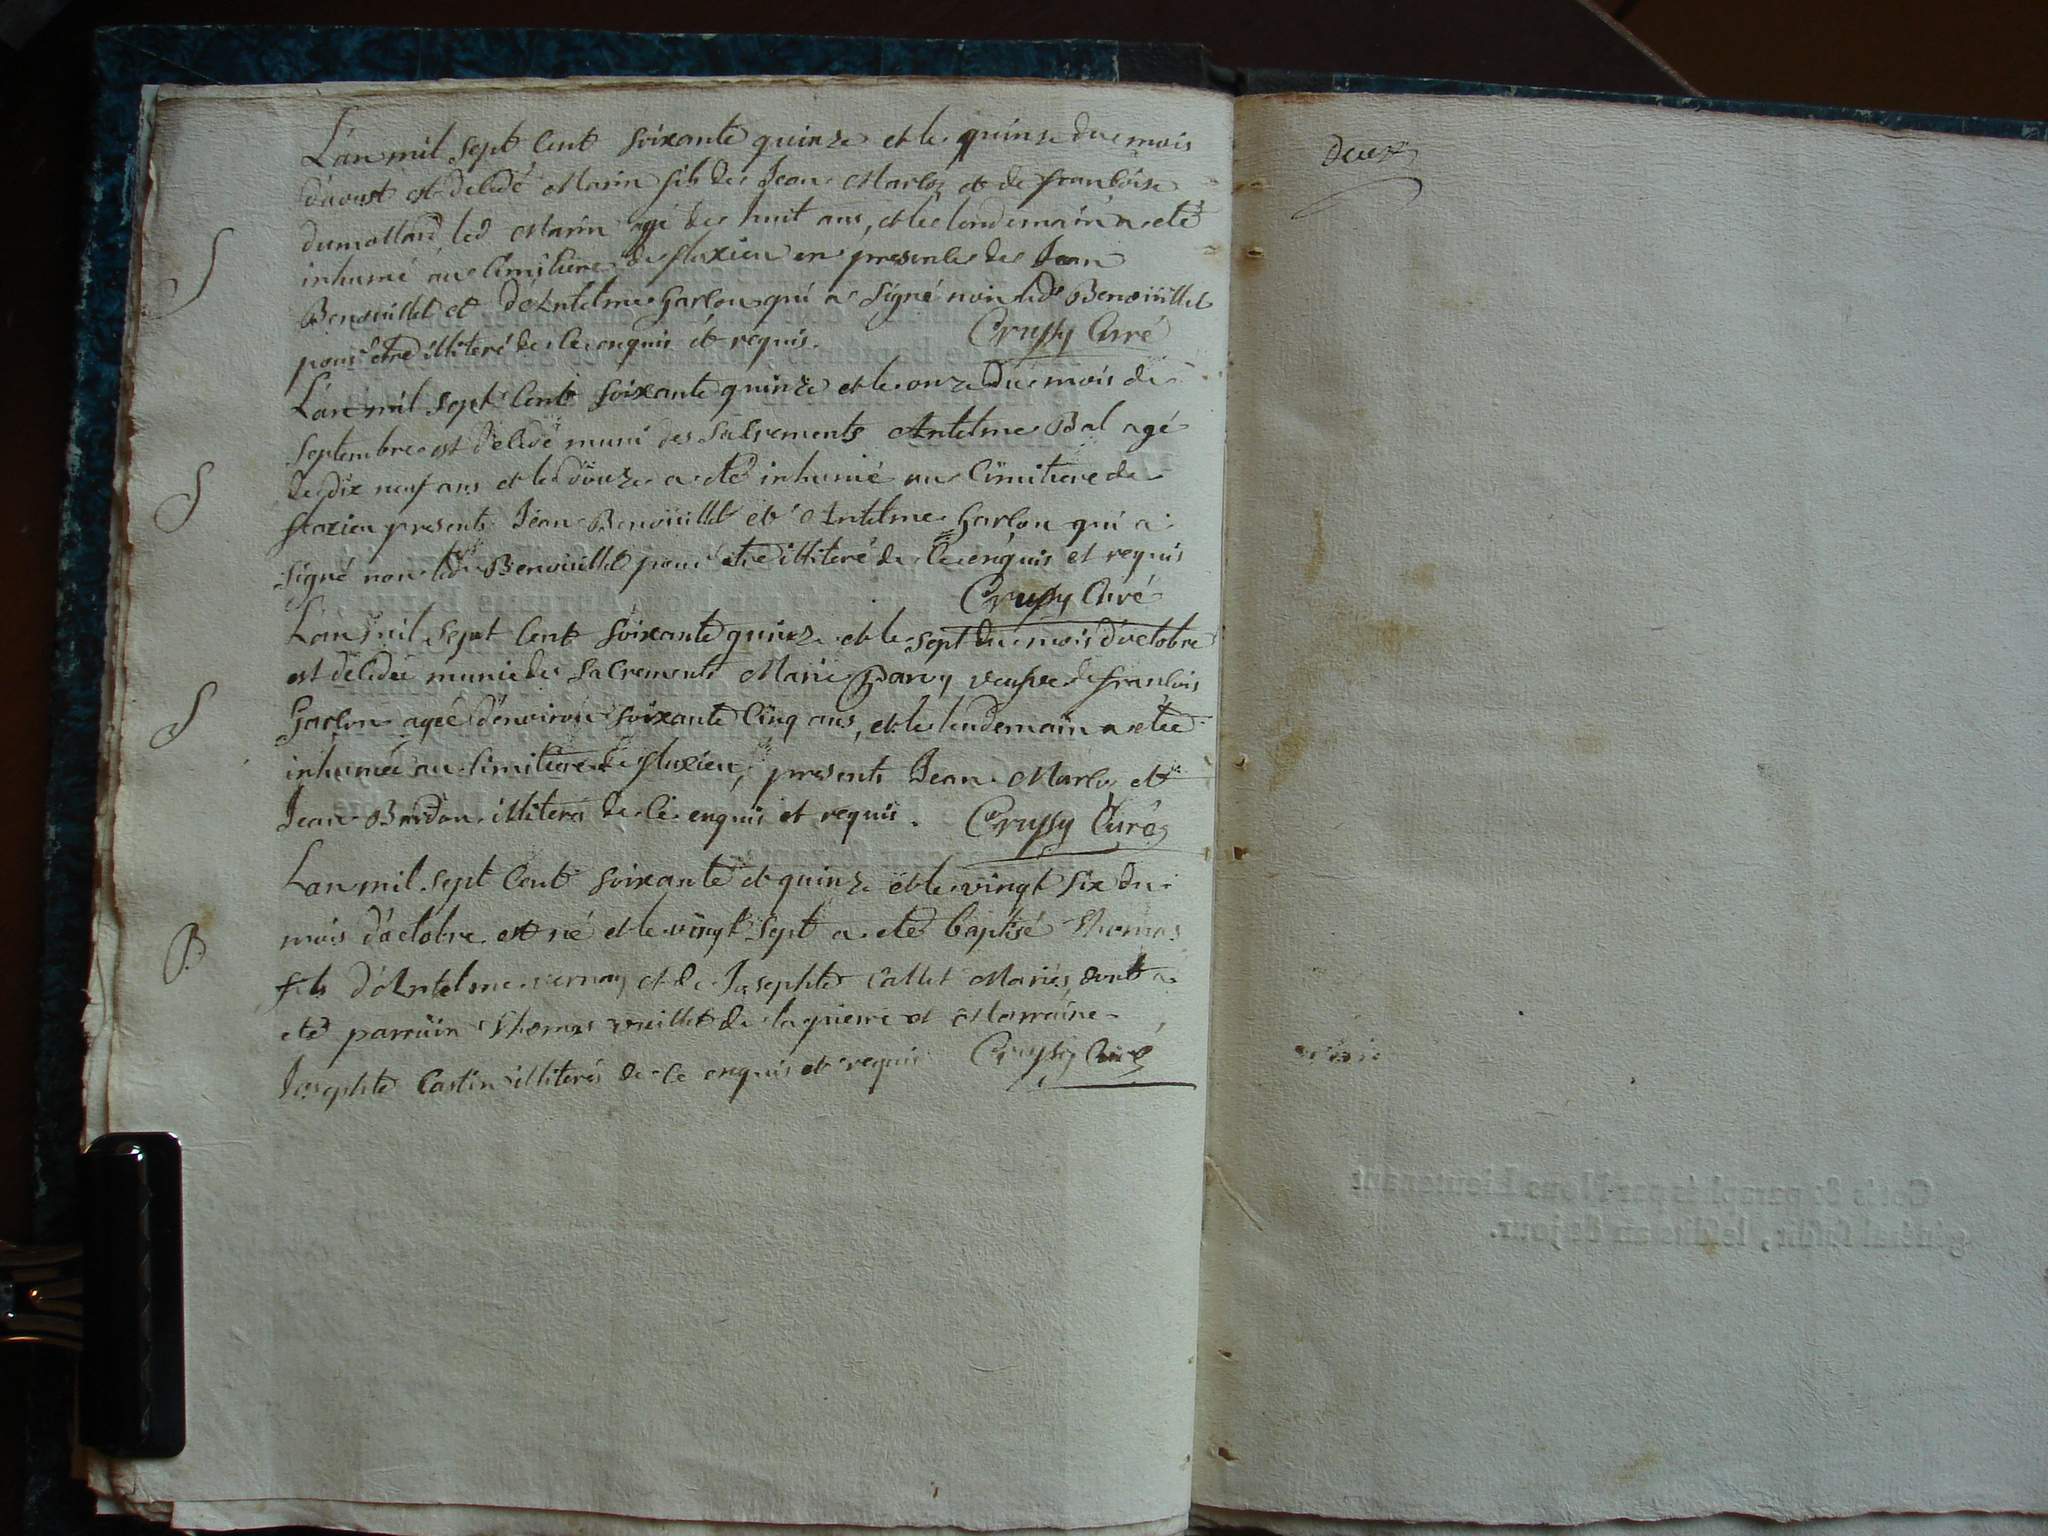 L'an mil sept cent soixante quinze et le quinze du mois
d'aoust est décédé Marin fils de Jean Marloz et de francoise
dumollard, led Marin agé de huit ans, et le lendemain a eté
inhumé au cimitiere de flaxieu en presence de Jean
Benouillet et d'Antelme Garlon qui a signé non led Benouillet
pour etre illiteré de ce enquis et requis. Crussy Curé
S
L'an mil sept cent soixante quinze et le onze du mois de
Septembre est décédé muni des sacrements Antelme Bal agé
de dix neuf ans et le douze a eté inhumé au cimitiere de
flaxieu presents Jean Benouillet et Antelme Garlon qui a
signé non led Benouillet pour etre illiteré de ce enquis et requis
Crussy Curé
S
L'an mil sept cent soixante quinze et le sept du mois d'octobre
est décédée munie des sacrements Marie veufve de francois
Garlon agée d'environ soixante cinq ans, et le lendemain a etée
inhumée au cimitiere de flaxieu, presents Jean Marloz et
Jean Bardon illiterés de ce enquis et requis. Crussy Curé
S
L'an mil sept cent soixante et quinze et le vingt six du
mois d'octobre est né et le vingt sept a eté baptisé Thomas
fils d'Antelme vernay et de Josephte Callet Mariés, dont a
eté parrain Thomas vuillet de la guierre et Marraine
Josephte Castin illiterés de ce enquis et requis Crussy Curé
B
deux
Cotés & paraphés par Nous Lieutenant
général susdit, lesdits an & jour.